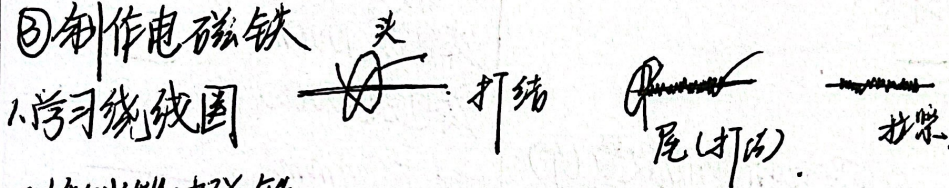 ③制作电磁铁
1.学习绕线圈 头 打结 尾(打结) 拉紧